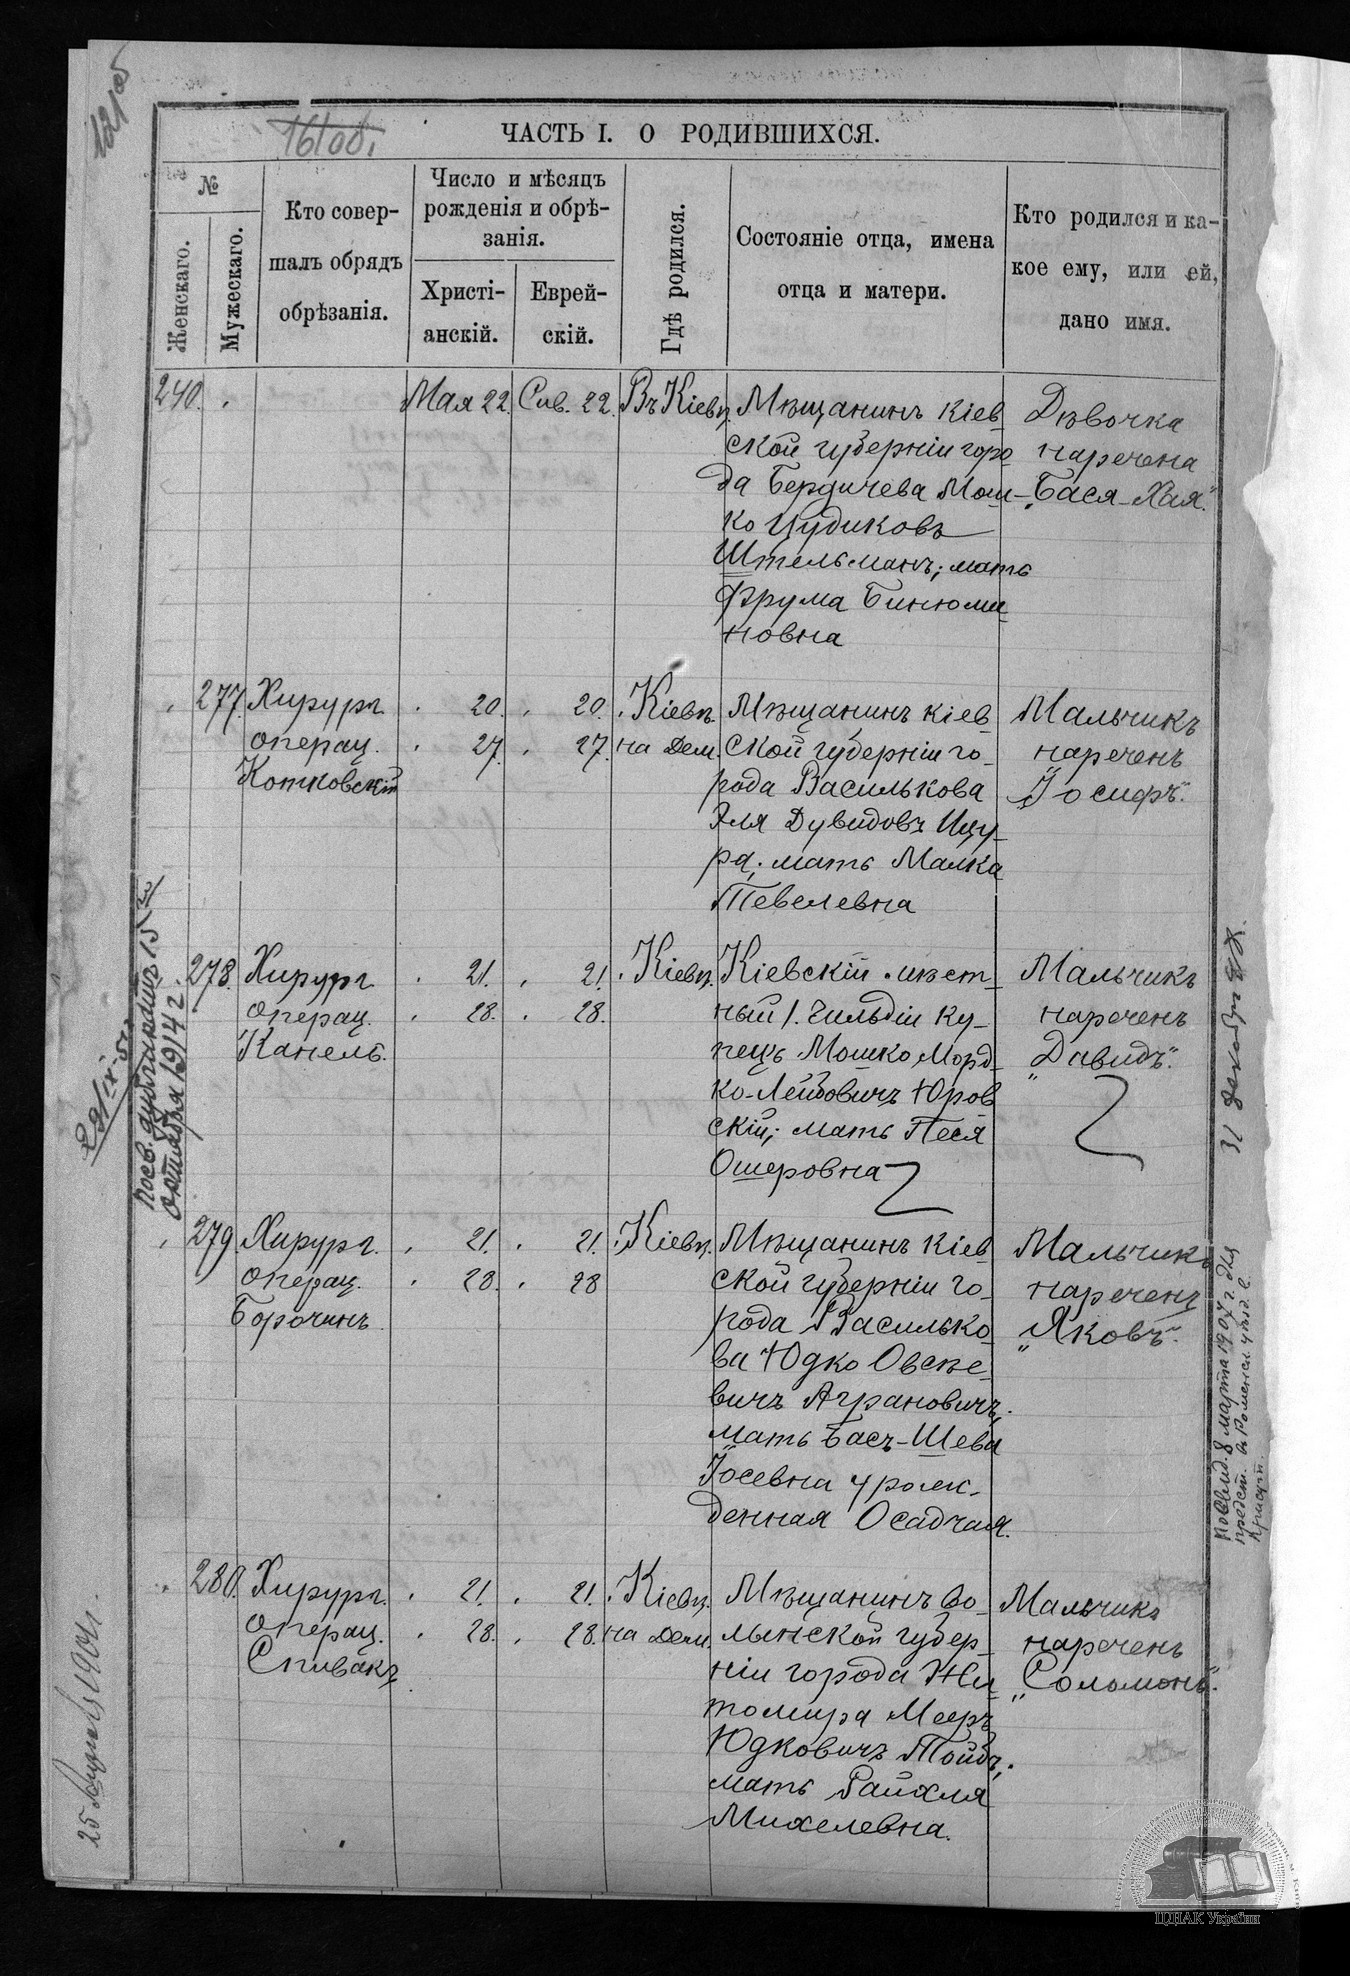 121 об
161 об.
ЧАСТЬ I. О РОДИВШИХСЯ.
№
Женскаго.
Мужескаго.
Кто совер-
шалъ обрядъ
обрѣзанія.
Число и мѣсяцъ
рожденія и обрѣ-
занія.
Христі-
анскій.
Еврей-
скій.
Гдѣ родился.
Состояніе отца, имена
отца и матери.
Кто родился и ка-
кое ему, или ей,
дано имя.
240.
Мая 22.
Сив. 22.
Въ Кіевѣ.
Мѣщанинъ Кіев-
ской губерніи горо-
да Бердичева Мош-
ко Цудиковъ
Штельманъ; мать
Фрума Бинюми-
новна
Дѣвочка
наречена
„Бася-Хая".
277.
Хирург.
операц.
Котковскій
20.
27.
20.
27.
Кіевѣ.
на Дем.
Мѣщанинъ Кіев-
ской губерніи го-
рода Василькова
Эля Дувидовъ Цу-
ра; мать Малка
Тевелевна
Мальчикъ
нареченъ
„Іосифъ".
278.
Хирург.
операц.
Канель.
21.
28.
21.
28.
Кіевѣ.
Кіевскій мѣст-
ный 1. гильдіи ку-
пецъ Мошко Морд-
ко-Лейбовичъ Юров-
скій; мать Песя
Ошеровна
Мальчикъ
нареченъ
„Давидъ".
279.
Хирург.
операц.
Борочинъ
21.
28.
21.
28
Кіевѣ.
Мѣщанинъ Кіев-
ской губерніи го-
рода Василько-
ва Юдко Овсѣе-
вичъ Аграновичъ;
мать Бась-Шева
Іосевна урож-
денная Осадчая.
Мальчикъ
нареченъ
„Яковъ".
280.
Хирург.
операц.
Спивакъ
21.
28.
21.
28.
Кіевѣ.
на Дем.
Мѣщанинъ Во-
лынской губер-
ніи города Жи-
томира Мееръ
Юдковичъ Тойбъ;
мать Райхля
Михелевна.
Мальчикъ
нареченъ
„Соломонъ".
посв. дубликатъ 15
октября 1914 г.
25 1901 г.
31 декабря
посвид. 8 марта 1907 г. для
предст. в Роменск. уѣзд. в.
присут.
ЦДІАК України